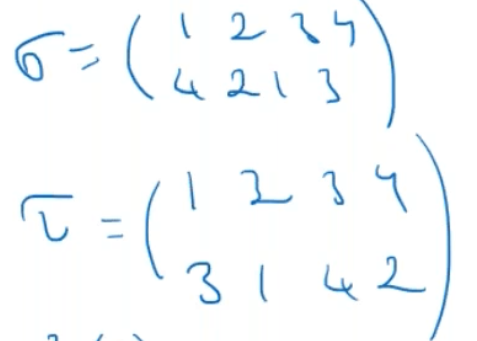 σ = ( 1 2 3 4
4 2 1 3 )
τ = ( 1 2 3 4
3 1 4 2 )